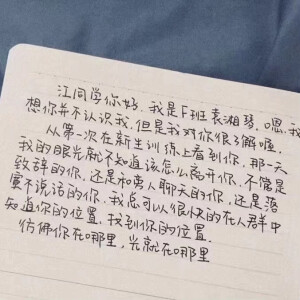 江同学你好，我是F班袁湘琴，嗯，我
想你并不认识我，但是我对你很了解喔，
从第一次在新生训练上看到你，那一天
我的眼光就不知道该怎么离开你，不管是
致辞的你，还是和旁人聊天的你，还是落
寞不说话的你，我总可以很快的在人群中
知道你的位置，找到你的位置，
仿佛你在哪里，光就在哪里